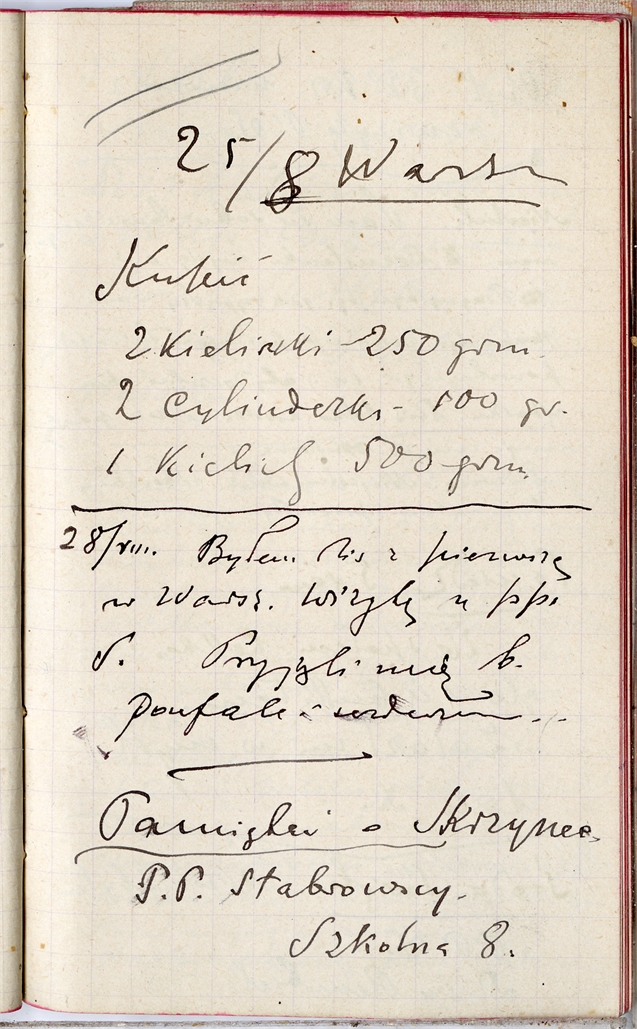 25/8 Warsz
Kupić
2 Kieliszki - 250 grm.
2 Cylinderki - 100 gr.
1 Kielich. 500 grm.
28/VIII. Byłem dziś z pierwszą
w Warsz. wizytą u pp.
S. Przyjęli mię b.
poufale i serdecznie...
Pamiętać o Skrzynce
P.P. Stabrowscy.
Szkolna 8.